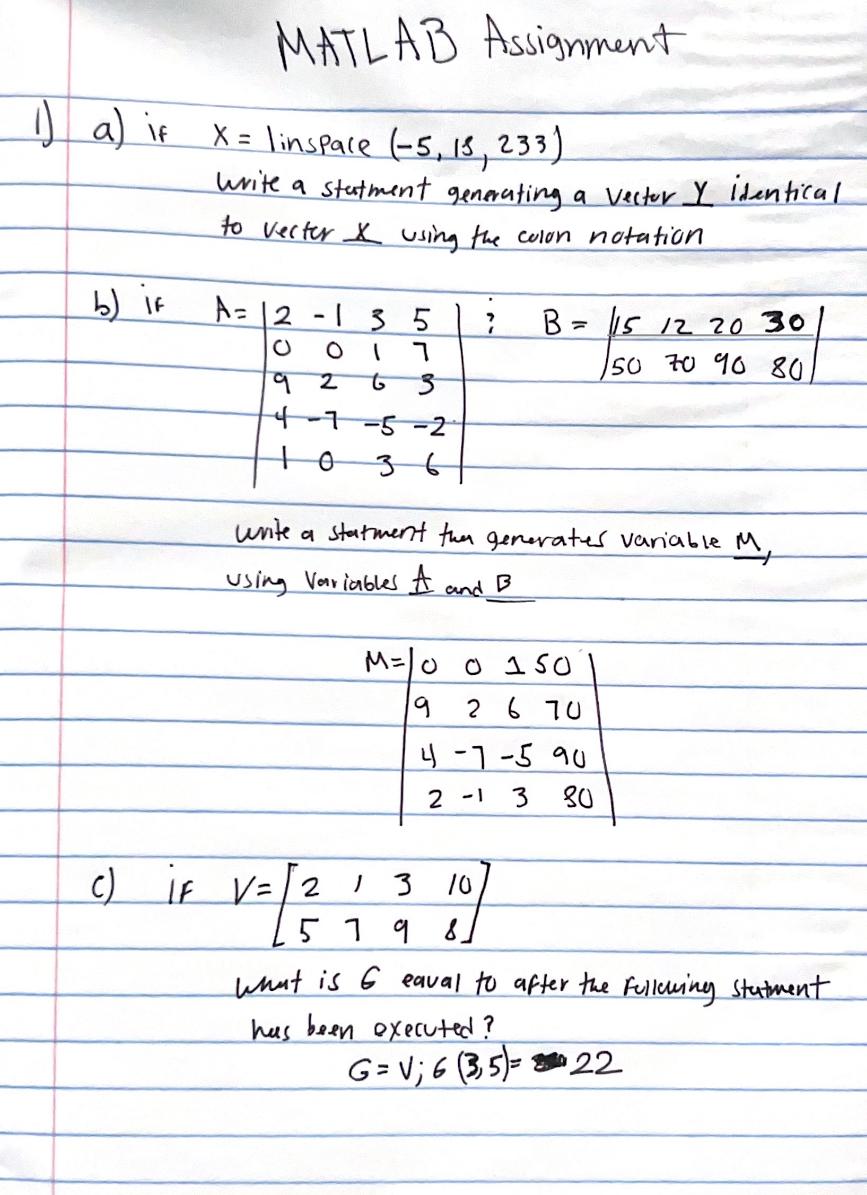 MATLAB Assignment
1) a) if X = linspace (-5, 15, 233)
write a statment generating a vector Y identical
to vector X using the colon notation
b) if A= |2 -1 3 5| ; B = |15 12 20 30|
|0 0 1 7 |50 70 90 80|
|9 2 6 3
|4 -7 -5 -2
|1 0 3 6|
write a statment that generates variable M,
using variables A and B
M=|0 0 1 50|
|9 2 6 70
|4 -7 -5 90
|2 -1 3 80|
c) if V= [2 1 3 10]
[5 7 9 8]
what is G equal to after the following statment
has been executed?
G = V; G (3,5)= 22